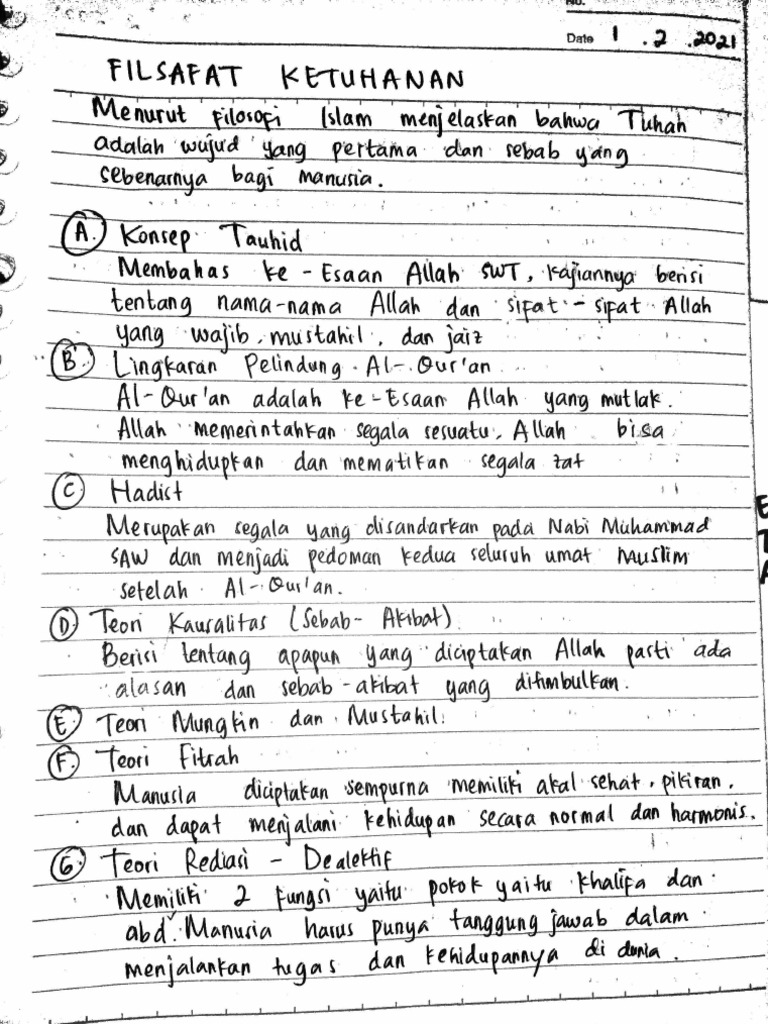 No.
Date 1 . 2 . 2021
FILSAFAT KETUHANAN
Menurut filosofi Islam menjelaskan bahwa Tuhan
adalah wujud yang pertama dan sebab yang
sebenarnya bagi manusia.
A. Konsep Tauhid
Membahas ke-Esaan Allah SWT, kajiannya berisi
tentang nama-nama Allah dan sifat-sifat Allah
yang wajib, mustahil, dan jaiz
B. Lingkaran Pelindung Al-Qur'an
Al-Qur'an adalah ke-Esaan Allah yang mutlak.
Allah memerintahkan segala sesuatu. Allah bisa
menghidupkan dan mematikan segala zat
C Hadist
Merupakan segala yang disandarkan pada Nabi Muhammad
SAW dan menjadi pedoman kedua seluruh umat Muslim
setelah Al-Qur'an.
D Teori Kausalitas (Sebab-Akibat)
Berisi tentang apapun yang diciptakan Allah pasti ada
alasan dan sebab-akibat yang ditimbulkan.
E. Teori Mungkin dan Mustahil.
F. Teori Fitrah
Manusia diciptakan sempurna memiliki akal sehat, pikiran,
dan dapat menjalani kehidupan secara normal dan harmonis.
G Teori Rediasi - Dealektif
Memiliki 2 fungsi yaitu pokok yaitu khalifa dan
abd. Manusia harus punya tanggung jawab dalam
menjalankan tugas dan kehidupannya di dunia.